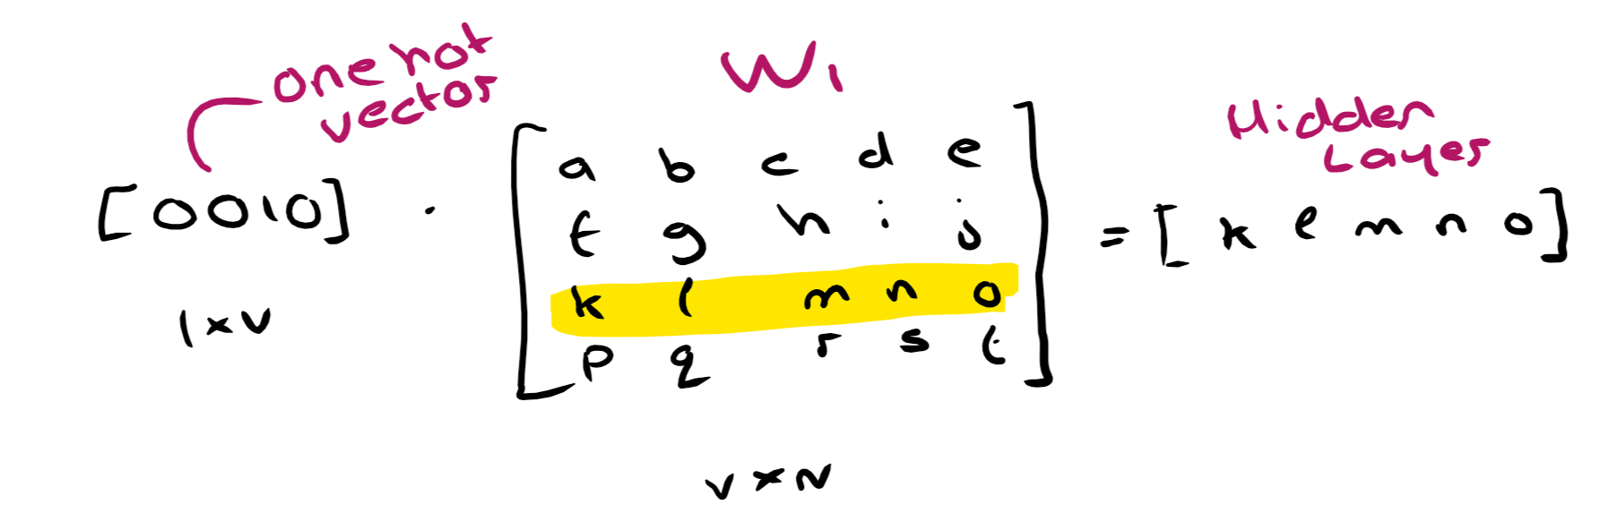 one hot
vector
W1
Hidden
Layer
[0010] · [a b c d e
f g h i j
k l m n o
p q r s t] = [k l m n o]
1×V
V×N